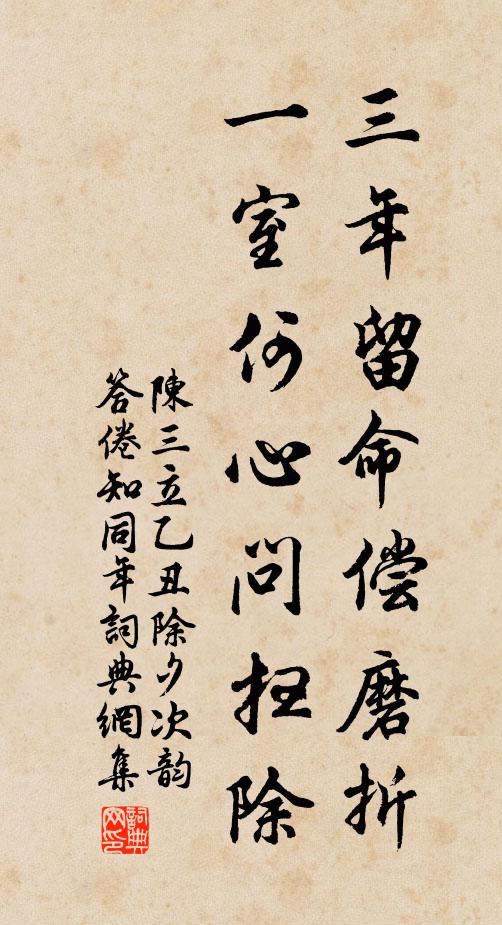 三年留命偿磨折
一室何心问扫除
陳三立乙丑除夕次韵
答倦知同年詞典網集
詞典
网印